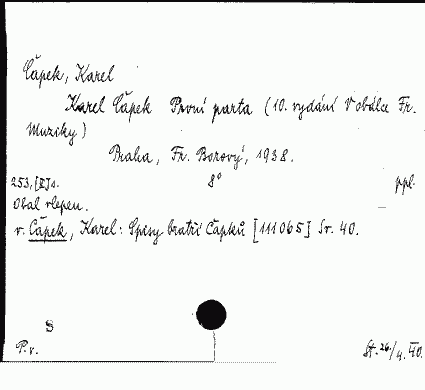 Čapek, Karel
Karel Čapek První parta (10. vydání V obálce Fr.
Muziky)
Praha, Fr. Borový, 1938.
253, [II] s. 8° ppl.
Obal vlepen.
v. Čapek, Karel: Spisy bratří Čapků [111065] Sv. 40.
S
P.v. St. 26/4. 40.